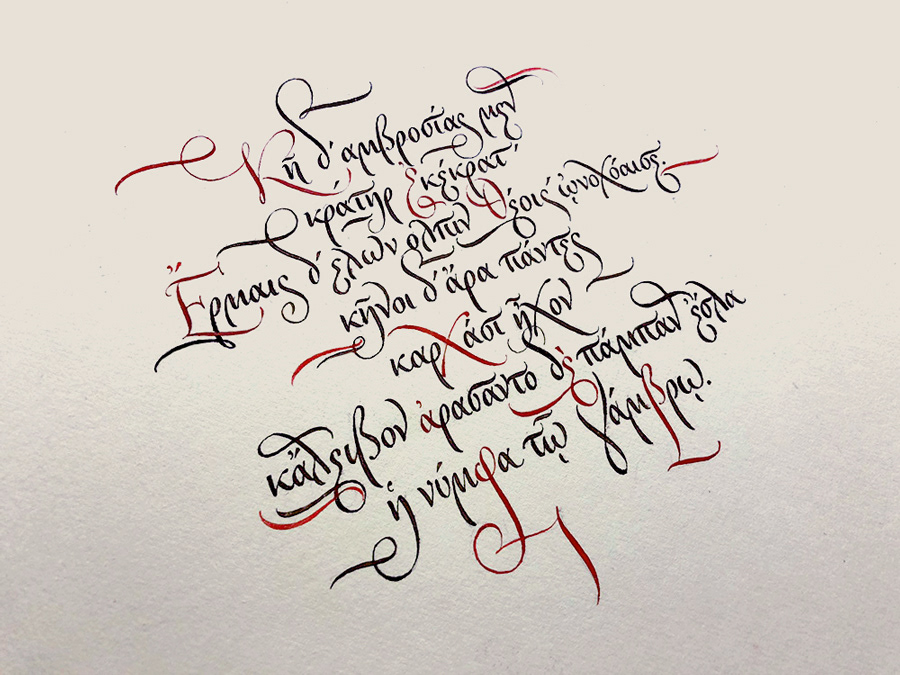 Κῆ δ' αμβροσίας μεν
κράτηρ ἐκέκρατ'
Ἔρμαις δ' ἔλων ολπιν θέοις' ᾠνοχόαισε.
κῆνοι δ' ἄρα πάντες
καρχάσι' ἦχον
κἄλειβον ἀρασαντο δὲ πάμπαν ἔσλα
ἠ νύμφα τῷ γάμβρῳ.